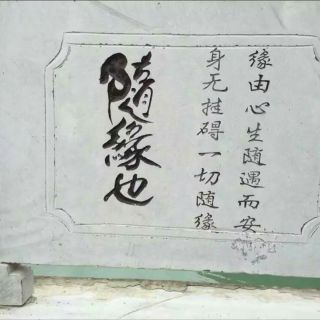 缘由心生随遇而安
身无挂碍一切随缘
随缘也